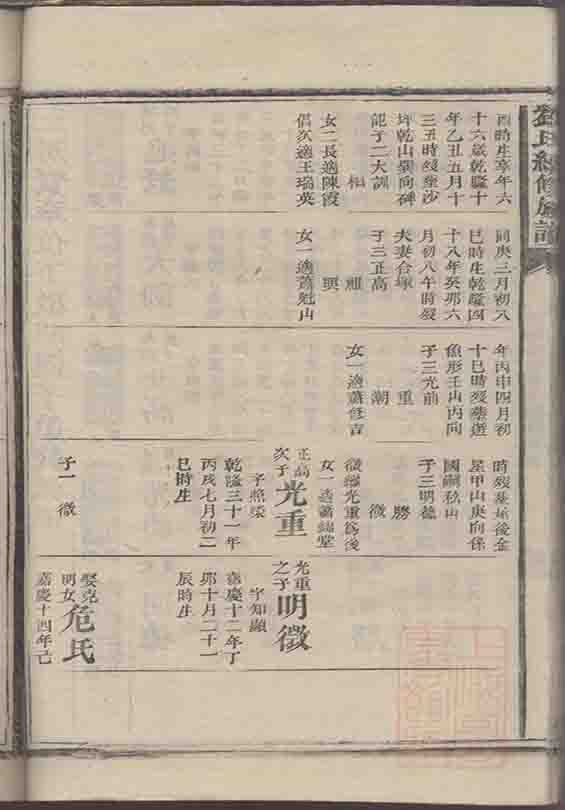 劉氏續修族譜
酉時生卒年六
十六歲乾隆十
年乙丑五月十
三丑時歿塟沙
坪乾山巽向碑
記子二大訓
相
女二長適陳霞
倡次適王瑞英
同庚三月初八
巳時生乾隆四
十八年癸卯六
月初八午時歿
夫妻合塚
子三正高
女一適蕭魁山
年丙申四月初
十巳時歿塟遊
魚形壬山丙向
子三光前
重
潮
女一適蕭修吉
時歿塟屋後金
星甲山庚向係
國嗣秋山
子三明德
勝
徵
徵繼光重爲後
女一適蕭錦堂
正高次子光重
字熙榮
乾隆三十一年
丙戌七月初二
巳時生
子一徵
光重之子明徵
字知顯
嘉慶十二年丁
卯十月二十一
辰時生
娶克明女危氏
嘉慶十四年己